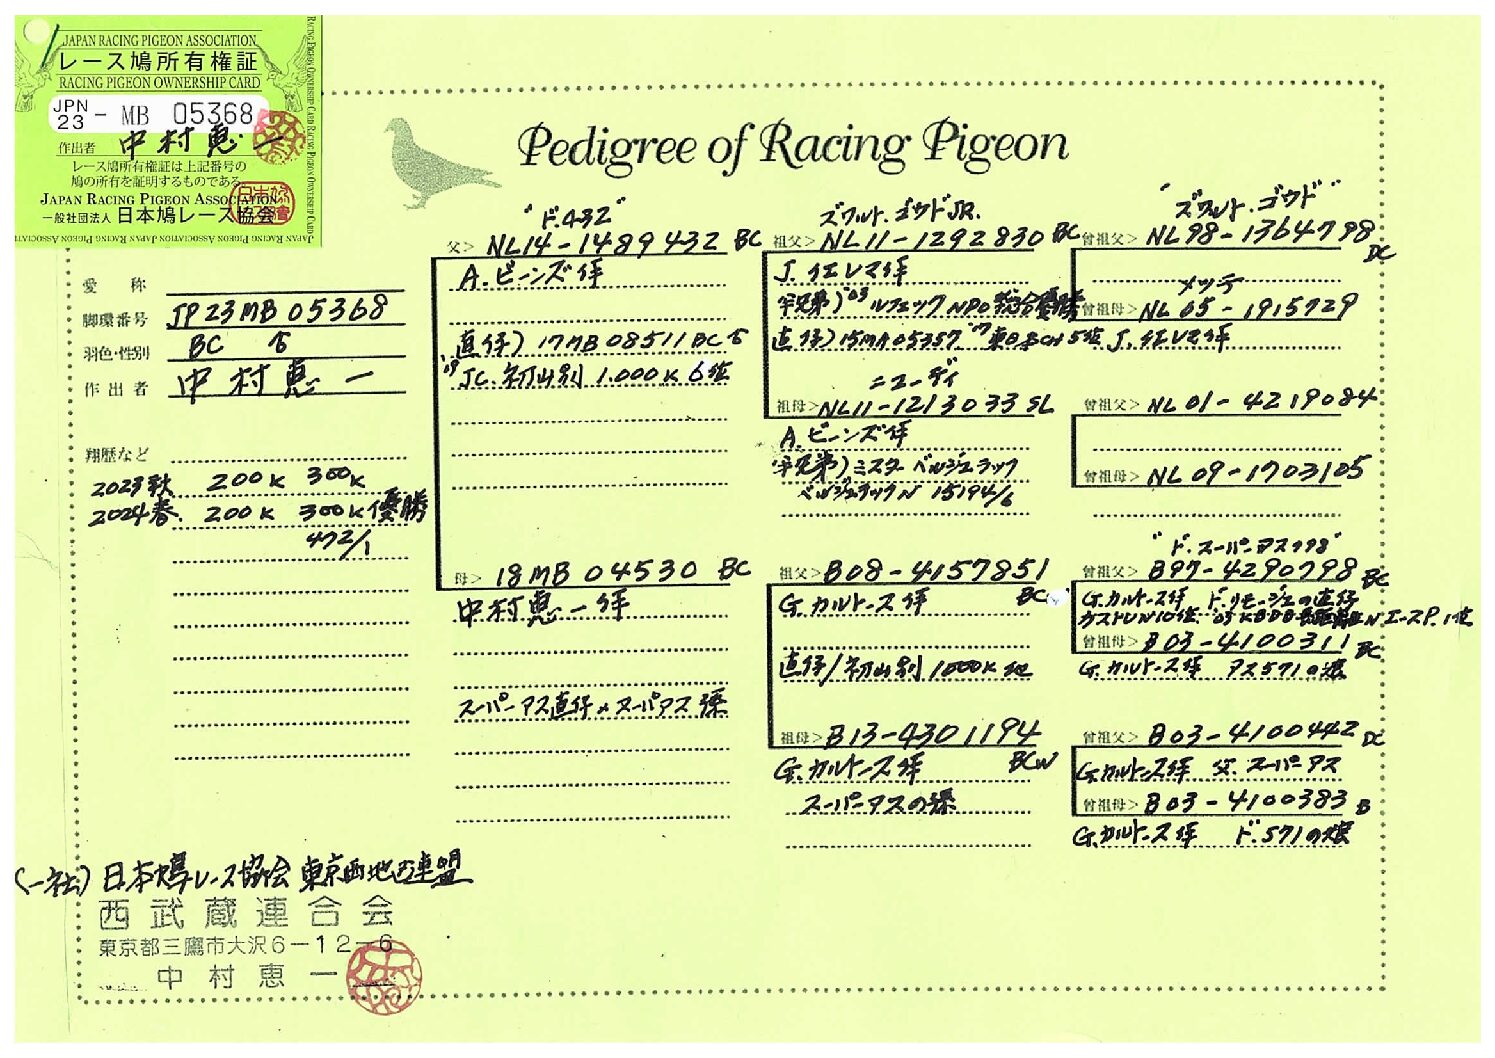 JAPAN RACING PIGEON ASSOCIATION
レース鳩所有権証
RACING PIGEON OWNERSHIP CARD
JPN 23 - MB 05368
作出者 中村恵一
レース鳩所有権証は上記番号の
鳩の所有を証明するものである
JAPAN RACING PIGEON ASSOCIATION
一般社団法人 日本鳩レース協会
Pedigree of Racing Pigeon
愛称
脚環番号 JP23MB05368
羽色・性別 BC ♀
作出者 中村恵一
翔歴など
2023秋 200K 300K
2024春. 200K 300K優勝
472/1
"ド.432"
父> NL14-1489432 BC
A.ビーンズ作
直仔) 17MB08511BC♀
'19 JC.初山別 1.000K 6位
母> 18MB04530 BC
中村恵一作
スーパーアス直仔×スーパーアス孫
ズワルト.ゴウドJR.
祖父> NL11-1292830 BC
J.イエレマ作
全兄弟)'03 ルフェック NPO総合優勝
直仔) 15MA05357 '17東日本CH5位
ニューディ
祖母> NL11-1213033 SL
A.ビーンズ作
全兄弟)ミスターベルジュラック
ベルジュラックN 15194/6
祖父> B08-4157851
BC
G.カルトース作
直仔/初山別1000K他
祖母> B13-4301194
BCW
G.カルトース作
スーパーアスの孫
"ズワルト.ゴウド"
曾祖父> NL98-1364798
DC
メッテ
曾祖母> NL05-1915729
J.イエレマ作
曾祖父> NL01-4219084
曾祖母> NL09-1703105
"ド.スーパーアス998"
曾祖父> B97-4290998 BC
G.カルトース作 ド.リモージュの直仔
カストUN10位 '03KBDB長距離N エースP.1位
曾祖母> B03-4100311 BC
G.カルトース作 アス571の娘
曾祖父> B03-4100442 DC
G.カルトース作 父.スーパーアス
曾祖母> B03-4100383 B
G.カルトース作 ド.571の娘
(一社)日本鳩レース協会 東京西地区連盟
西武蔵連合会
東京都三鷹市大沢6-12-6
中村恵一